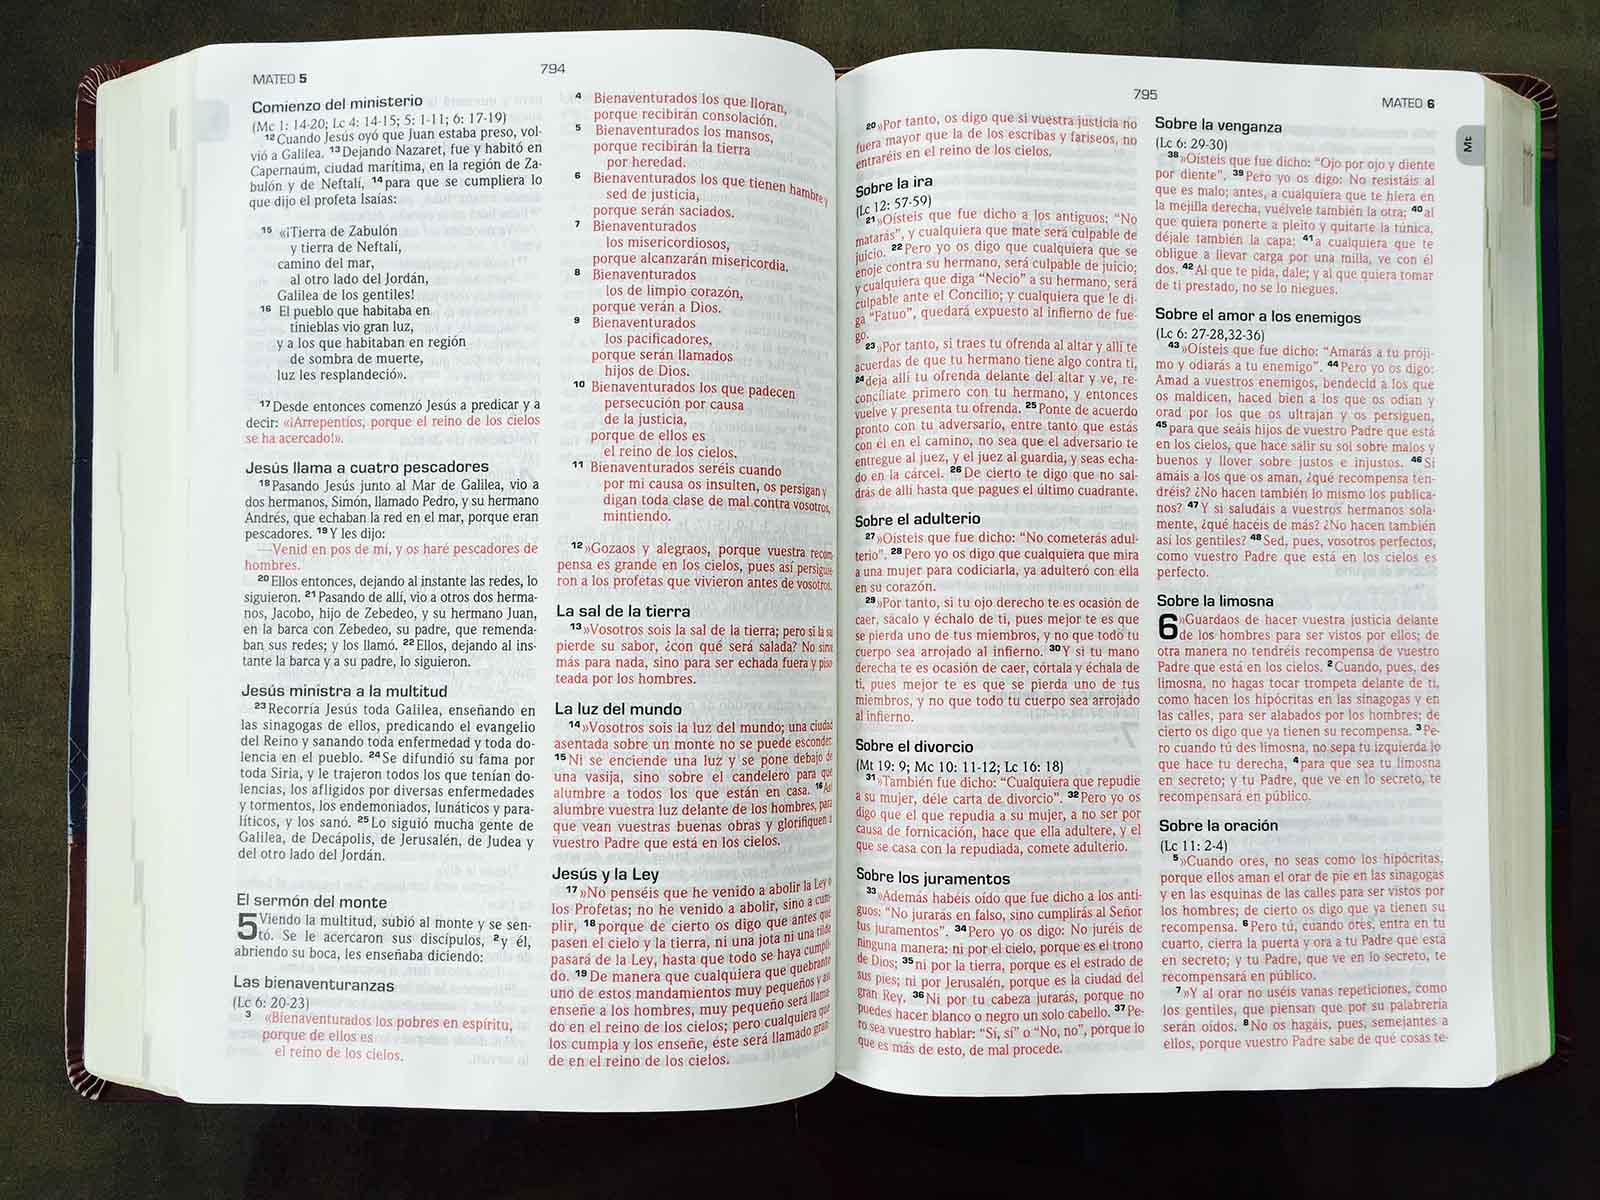 MATEO 5
794
Comienzo del ministerio
(Mc 1: 14-20; Lc 4: 14-15; 5: 1-11; 6: 17-19)
12Cuando Jesús oyó que Juan estaba preso, vol-
vió a Galilea. 13Dejando Nazaret, fue y habitó en
Capernaúm, ciudad marítima, en la región de Za-
bulón y de Neftalí, 14para que se cumpliera lo
que dijo el profeta Isaías:
15 «¡Tierra de Zabulón
y tierra de Neftalí,
camino del mar,
al otro lado del Jordán,
Galilea de los gentiles!
16 El pueblo que habitaba en
tinieblas vio gran luz,
y a los que habitaban en región
de sombra de muerte,
luz les resplandeció».
17Desde entonces comenzó Jesús a predicar y a
decir: «¡Arrepentíos, porque el reino de los cielos
se ha acercado!».
Jesús llama a cuatro pescadores
18Pasando Jesús junto al Mar de Galilea, vio a
dos hermanos, Simón, llamado Pedro, y su hermano
Andrés, que echaban la red en el mar, porque eran
pescadores. 19Y les dijo:
—Venid en pos de mí, y os haré pescadores de
hombres.
20Ellos entonces, dejando al instante las redes, lo
siguieron. 21Pasando de allí, vio a otros dos herma-
nos, Jacobo, hijo de Zebedeo, y su hermano Juan,
en la barca con Zebedeo, su padre, que remenda-
ban sus redes; y los llamó. 22Ellos, dejando al ins-
tante la barca y a su padre, lo siguieron.
Jesús ministra a la multitud
23Recorría Jesús toda Galilea, enseñando en
las sinagogas de ellos, predicando el evangelio
del Reino y sanando toda enfermedad y toda do-
lencia en el pueblo. 24Se difundió su fama por
toda Siria, y le trajeron todos los que tenían do-
lencias, los afligidos por diversas enfermedades
y tormentos, los endemoniados, lunáticos y para-
líticos, y los sanó. 25Lo siguió mucha gente de
Galilea, de Decápolis, de Jerusalén, de Judea y
del otro lado del Jordán.
El sermón del monte
5 Viendo la multitud, subió al monte y se sen-
tó. Se le acercaron sus discípulos, 2y él,
abriendo su boca, les enseñaba diciendo:
Las bienaventuranzas
(Lc 6: 20-23)
3 «Bienaventurados los pobres en espíritu,
porque de ellos es
el reino de los cielos.
4 Bienaventurados los que lloran,
porque recibirán consolación.
5 Bienaventurados los mansos,
porque recibirán la tierra
por heredad.
6 Bienaventurados los que tienen hambre y
sed de justicia,
porque serán saciados.
7 Bienaventurados
los misericordiosos,
porque alcanzarán misericordia.
8 Bienaventurados
los de limpio corazón,
porque verán a Dios.
9 Bienaventurados
los pacificadores,
porque serán llamados
hijos de Dios.
10 Bienaventurados los que padecen
persecución por causa
de la justicia,
porque de ellos es
el reino de los cielos.
11 Bienaventurados seréis cuando
por mi causa os insulten, os persigan y
digan toda clase de mal contra vosotros,
mintiendo.
12»Gozaos y alegraos, porque vuestra recom
pensa es grande en los cielos, pues así persiguie
ron a los profetas que vivieron antes de vosotros.
La sal de la tierra
13»Vosotros sois la sal de la tierra; pero si la sa
pierde su sabor, ¿con qué será salada? No sirve
más para nada, sino para ser echada fuera y piso
teada por los hombres.
La luz del mundo
14»Vosotros sois la luz del mundo; una ciudad
asentada sobre un monte no se puede esconder.
15Ni se enciende una luz y se pone debajo de
una vasija, sino sobre el candelero para que
alumbre a todos los que están en casa. 16Así
alumbre vuestra luz delante de los hombres, para
que vean vuestras buenas obras y glorifiquen a
vuestro Padre que está en los cielos.
Jesús y la Ley
17»No penséis que he venido a abolir la Ley o
los Profetas; no he venido a abolir, sino a cum
plir, 18porque de cierto os digo que antes que
pasen el cielo y la tierra, ni una jota ni una tilde
pasará de la Ley, hasta que todo se haya cumpli
do. 19De manera que cualquiera que quebrante
uno de estos mandamientos muy pequeños y así
enseñe a los hombres, muy pequeño será llama
do en el reino de los cielos; pero cualquiera que
los cumpla y los enseñe, éste será llamado gran
de en el reino de los cielos.
795
MATEO 6
Mt
20»Por tanto, os digo que si vuestra justicia no
fuera mayor que la de los escribas y fariseos, no
entraréis en el reino de los cielos.
Sobre la ira
(Lc 12: 57-59)
21»Oísteis que fue dicho a los antiguos: “No
matarás”, y cualquiera que mate será culpable de
juicio. 22Pero yo os digo que cualquiera que se
enoje contra su hermano, será culpable de juicio;
y cualquiera que diga “Necio” a su hermano, será
culpable ante el Concilio; y cualquiera que le di-
ga “Fatuo”, quedará expuesto al infierno de fue-
go.
23»Por tanto, si traes tu ofrenda al altar y allí te
acuerdas de que tu hermano tiene algo contra ti,
24deja allí tu ofrenda delante del altar y ve, re-
concíliate primero con tu hermano, y entonces
vuelve y presenta tu ofrenda. 25Ponte de acuerdo
pronto con tu adversario, entre tanto que estás
con él en el camino, no sea que el adversario te
entregue al juez, y el juez al guardia, y seas echa-
do en la cárcel. 26De cierto te digo que no sal-
drás de allí hasta que pagues el último cuadrante.
Sobre el adulterio
27»Oísteis que fue dicho: “No cometerás adul-
terio”. 28Pero yo os digo que cualquiera que mira
a una mujer para codiciarla, ya adulteró con ella
en su corazón.
29»Por tanto, si tu ojo derecho te es ocasión de
caer, sácalo y échalo de ti, pues mejor te es que
se pierda uno de tus miembros, y no que todo tu
cuerpo sea arrojado al infierno. 30Y si tu mano
derecha te es ocasión de caer, córtala y échala de
ti, pues mejor te es que se pierda uno de tus
miembros, y no que todo tu cuerpo sea arrojado
al infierno.
Sobre el divorcio
(Mt 19: 9; Mc 10: 11-12; Lc 16: 18)
31»También fue dicho: “Cualquiera que repudie
a su mujer, déle carta de divorcio”. 32Pero yo os
digo que el que repudia a su mujer, a no ser por
causa de fornicación, hace que ella adultere, y el
que se casa con la repudiada, comete adulterio.
Sobre los juramentos
33»Además habéis oído que fue dicho a los anti-
guos: “No jurarás en falso, sino cumplirás al Señor
tus juramentos”. 34Pero yo os digo: No juréis de
ninguna manera: ni por el cielo, porque es el trono
de Dios; 35ni por la tierra, porque es el estrado de
sus pies; ni por Jerusalén, porque es la ciudad del
gran Rey. 36Ni por tu cabeza jurarás, porque no
puedes hacer blanco o negro un solo cabello. 37Pe-
ro sea vuestro hablar: “Sí, sí” o “No, no”, porque lo
que es más de esto, de mal procede.
Sobre la venganza
(Lc 6: 29-30)
38»Oísteis que fue dicho: “Ojo por ojo y diente
por diente”. 39Pero yo os digo: No resistáis al
que es malo; antes, a cualquiera que te hiera en
la mejilla derecha, vuélvele también la otra; 40al
que quiera ponerte a pleito y quitarte la túnica,
déjale también la capa; 41a cualquiera que te
obligue a llevar carga por una milla, ve con él
dos. 42Al que te pida, dale; y al que quiera tomar
de ti prestado, no se lo niegues.
Sobre el amor a los enemigos
(Lc 6: 27-28,32-36)
43»Oísteis que fue dicho: “Amarás a tu próji-
mo y odiarás a tu enemigo”. 44Pero yo os digo:
Amad a vuestros enemigos, bendecid a los que
os maldicen, haced bien a los que os odian y
orad por los que os ultrajan y os persiguen,
45para que seáis hijos de vuestro Padre que está
en los cielos, que hace salir su sol sobre malos y
buenos y llover sobre justos e injustos. 46Si
amáis a los que os aman, ¿qué recompensa ten-
dréis? ¿No hacen también lo mismo los publica-
nos? 47Y si saludáis a vuestros hermanos sola-
mente, ¿qué hacéis de más? ¿No hacen también
así los gentiles? 48Sed, pues, vosotros perfectos,
como vuestro Padre que está en los cielos es
perfecto.
Sobre la limosna
6 »Guardaos de hacer vuestra justicia delante
de los hombres para ser vistos por ellos; de
otra manera no tendréis recompensa de vuestro
Padre que está en los cielos. 2Cuando, pues, des
limosna, no hagas tocar trompeta delante de ti,
como hacen los hipócritas en las sinagogas y en
las calles, para ser alabados por los hombres; de
cierto os digo que ya tienen su recompensa. 3Pe-
ro cuando tú des limosna, no sepa tu izquierda lo
que hace tu derecha, 4para que sea tu limosna
en secreto; y tu Padre, que ve en lo secreto, te
recompensará en público.
Sobre la oración
(Lc 11: 2-4)
5»Cuando ores, no seas como los hipócritas,
porque ellos aman el orar de pie en las sinagogas
y en las esquinas de las calles para ser vistos por
los hombres; de cierto os digo que ya tienen su
recompensa. 6Pero tú, cuando ores, entra en tu
cuarto, cierra la puerta y ora a tu Padre que está
en secreto; y tu Padre, que ve en lo secreto, te
recompensará en público.
7»Y al orar no uséis vanas repeticiones, como
los gentiles, que piensan que por su palabrería
serán oídos. 8No os hagáis, pues, semejantes a
ellos, porque vuestro Padre sabe de qué cosas te-